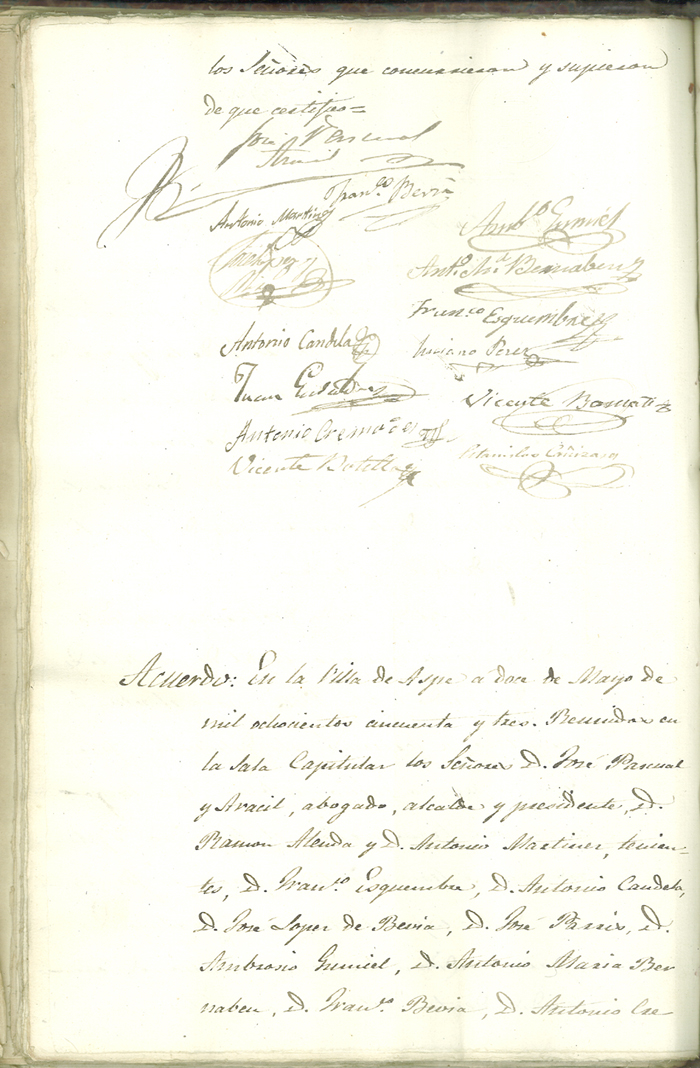 los Señores que concurrieron y supieron
de que certifico=
José Pascual
Aracil
Fran.co Bevia
Antonio Martinez
Amb.o Gumiel
Ant.o M.a Bernabeu
Fran.co Esquembre
Antonio Candela
Luciano Perez
Juan
Vicente
Antonio Cremades
Vicente Botella
Estanislao
Acuerdo: En la Villa de Aspe a doce de Mayo de
mil ochocientos cincuenta y tres. Reunidos en
la Sala Capitular los Señores D. José Pascual
y Aracil, abogado, alcalde y presidente, D.
Ramon Alenda y D. Antonio Martinez, tenien-
tes, D. Fran.co Esquembre, D. Antonio Candela,
D. José Lopez de Bevia, D. José Parris, D.
Ambrosio Gumiel, D. Antonio Maria Ber
nabeu, D. Fran.co Bevia, D. Antonio Cre